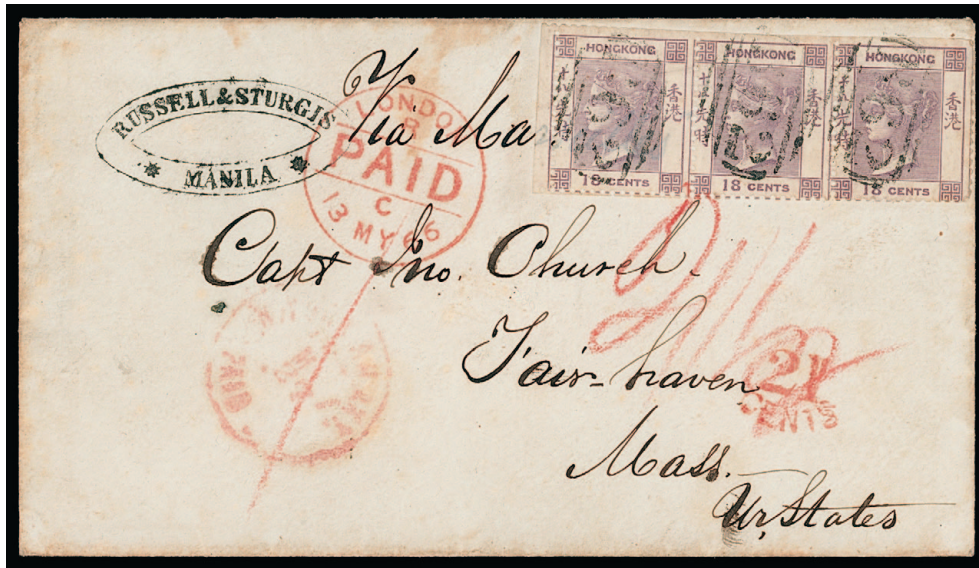 RUSSELL & STURGIS
MANILA
Via Ma
LONDO
PAID
C
13 MY 66
HONGKONG
香港
18 CENTS
HONGKONG
香港
18 CENTS
HONGKONG
香港
18 CENTS
Capt Jno. Church
Fair-haven
Mass.
U, States
PAID
21
CENTS